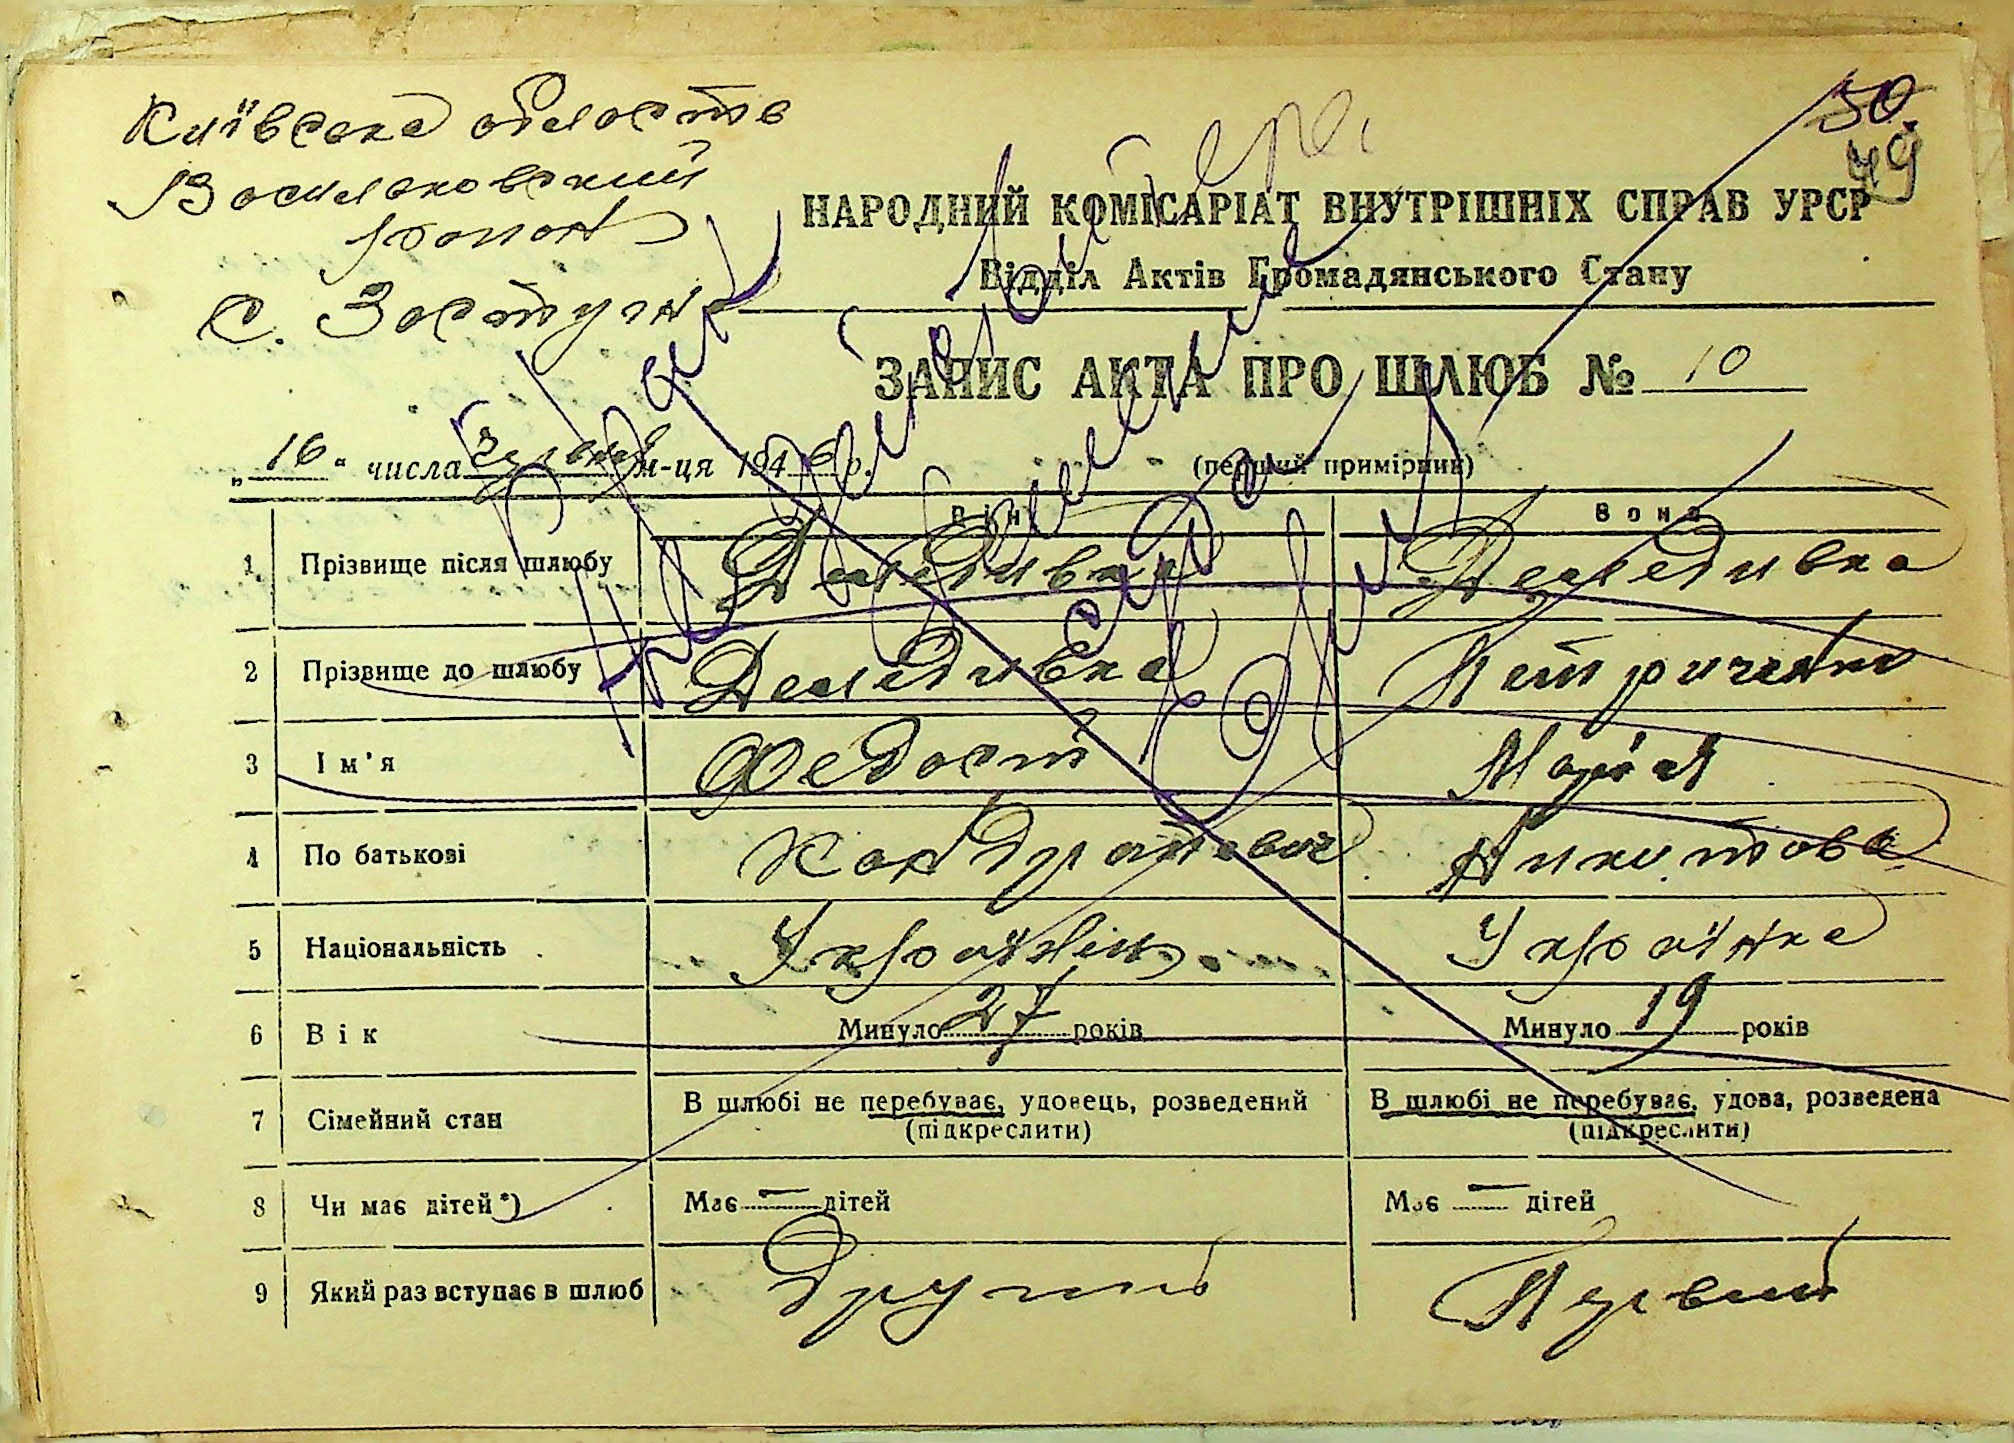 Київська область
50.
49
Васильковский
район
НАРОДНИЙ КОМІСАРІАТ ВНУТРІШНІХ СПРАВ УРСР
Відділ Актів Громадянського Стану
с. Застугна
ЗАПИС АКТА ПРО ШЛЮБ № 10
„16“ числа м-ця 1946 р.
(перший примірник)
Він Вона
1 Прізвище після шлюбу Демедивка Демедивка
2 Прізвище до шлюбу Демедивка Петриченко
3 Ім'я Федост Марія
4 По батькові Кондратович Никитова
5 Національність Українец Українка
6 Вік Минуло 27 років Минуло 19 років
7 Сімейний стан В шлюбі не перебуває, удовець, розведений В шлюбі не перебуває, удова, розведена
(підкреслити) (підкреслити)
8 Чи має дітей*) Має — дітей Має — дітей
9 Який раз вступає в шлюб Другий Первий